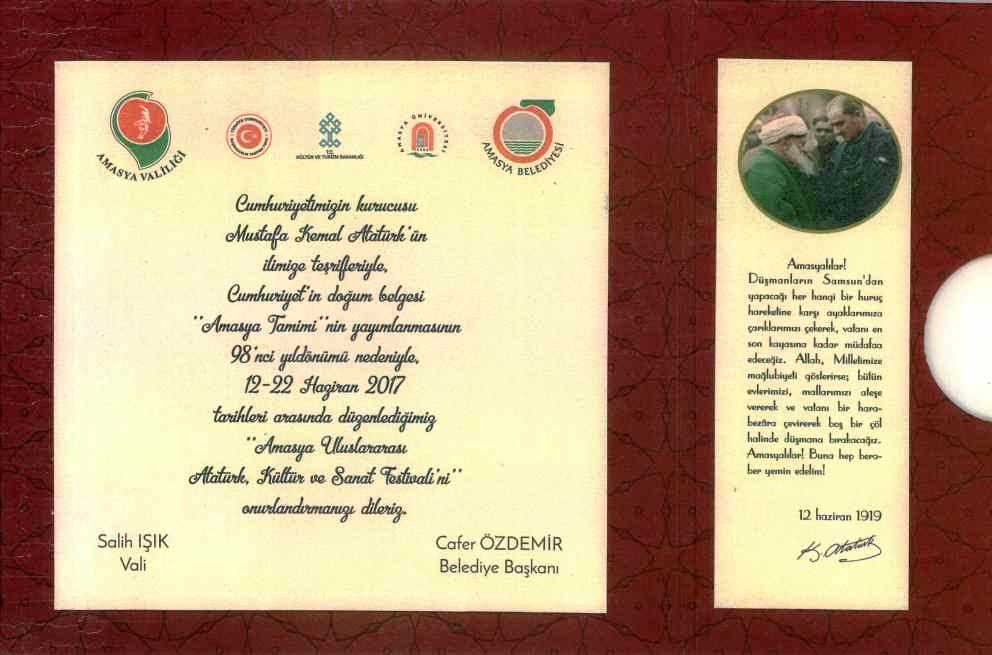 AMASYA VALİLİĞİ
T.C.
KÜLTÜR VE TURİZM BAKANLIĞI
AMASYA ÜNİVERSİTESİ
AMASYA BELEDİYESİ
Cumhuriyetimizin kurucusu
Mustafa Kemal Atatürk'ün
ilimize teşrifleriyle,
Cumhuriyet'in doğum belgesi
"Amasya Tamimi"nin yayımlanmasının
98'nci yıldönümü nedeniyle,
12-22 Haziran 2017
tarihleri arasında düzenlediğimiz
"Amasya Uluslararası
Atatürk, Kültür ve Sanat Festivali'ni"
onurlandırmanızı dileriz.
Salih IŞIK
Vali
Cafer ÖZDEMİR
Belediye Başkanı
Amasyalılar!
Düşmanların Samsun'dan
yapacağı her hangi bir huruç
hareketine karşı ayaklarımıza
çarıklarımızı çekerek, vatanı en
son kayasına kadar müdafaa
edeceğiz. Allah, Milletimize
mağlubiyeti gösterirse; bütün
evlerimizi, mallarımızı ateşe
vererek ve vatanı bir hara-
bezâra çevirerek boş bir çöl
halinde düşmana bırakacağız.
Amasyalılar! Buna hep bera-
ber yemin edelim!
12 haziran 1919
K. Atatürk